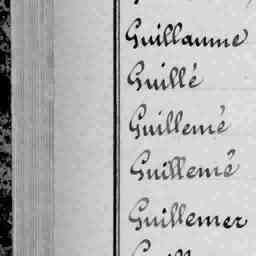 Guillaume
Guillé
Guillemé
Guillemé
Guillemer